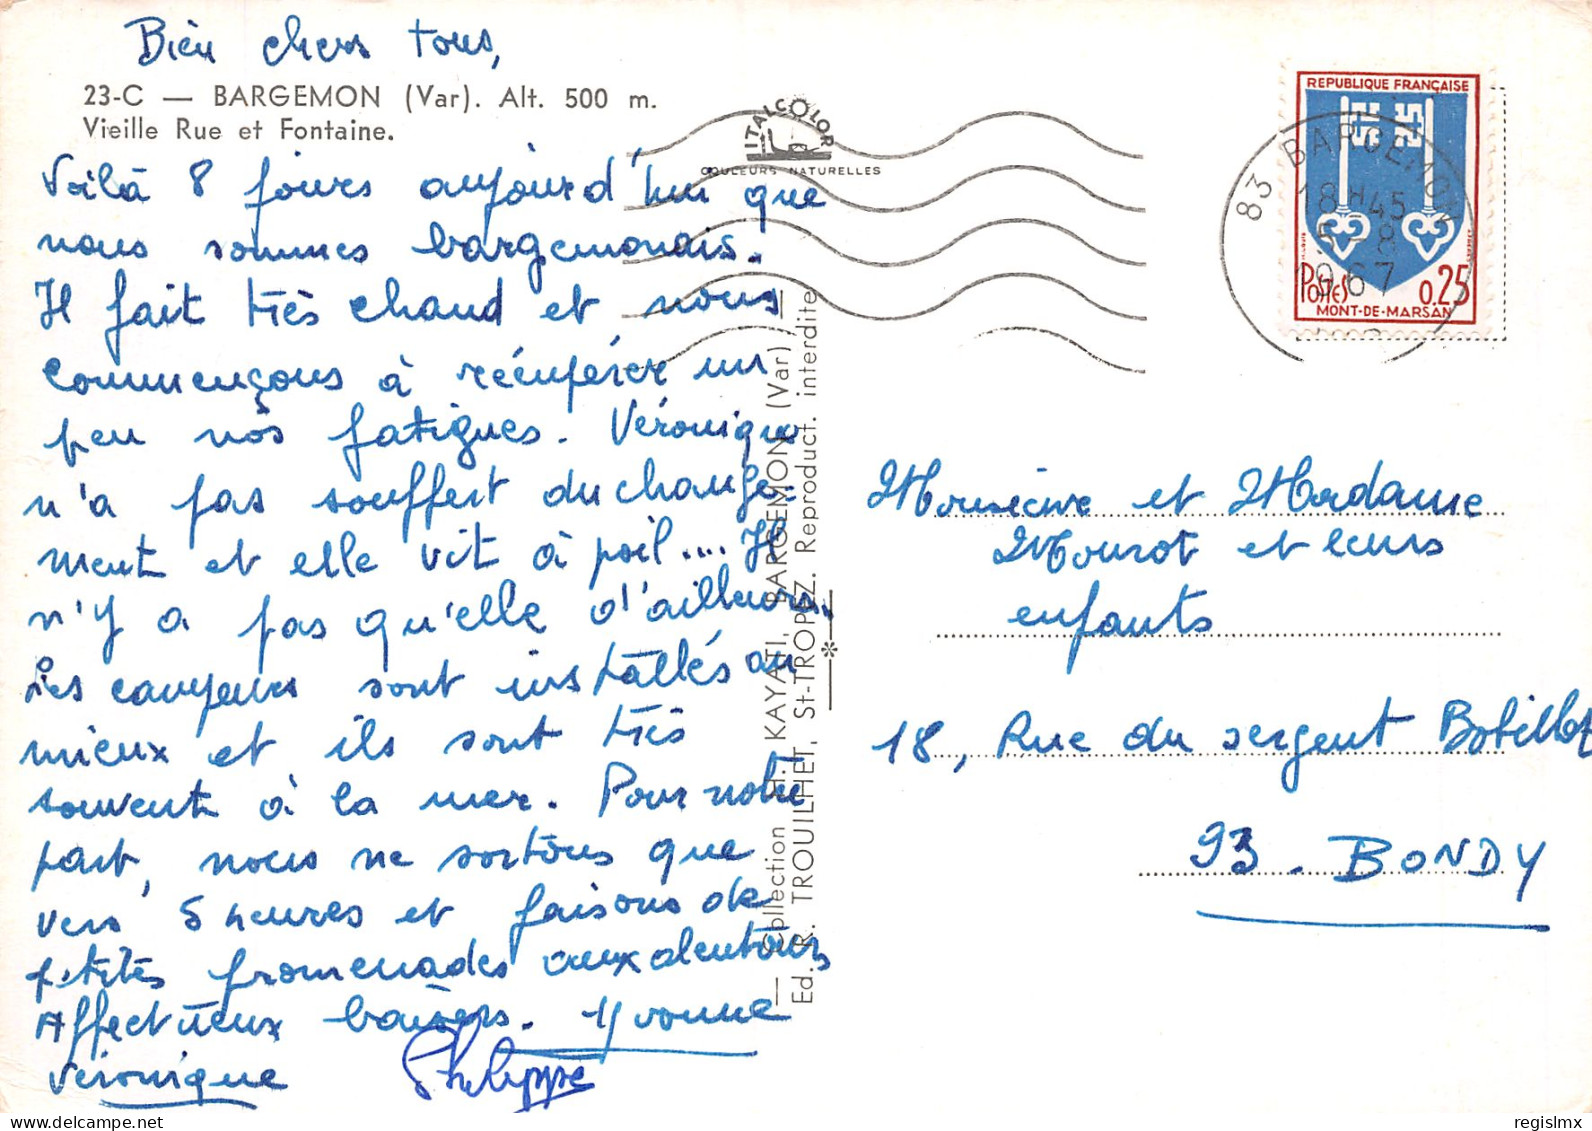 Bien chers tous,
23-C — BARGEMON (Var). Alt. 500 m.
Vieille Rue et Fontaine.
Voilà 8 jours aujourd'hui que
nous sommes bargemonais.
Il fait très chaud et nous
commençons à récupérer un
peu nos fatigues. Véronique
n'a pas souffert du change-
ment et elle vit à poil.... Il
n'y a pas qu'elle d'ailleurs.
Les campeurs sont installés au
mieux et ils sont très
souvent à la mer. Pour notre
part, nous ne sortons que
vers 5 heures et faisons de
petites promenades aux alentours
Affectueux baisers. Yvonne
Véronique Philippe
ITALCOLOR
COULEURS NATURELLES
Collection H. KAYATI, BARGEMON (Var)
Ed. R. TROUILHET, St-TROPEZ. Reproduct. interdite
REPUBLIQUE FRANÇAISE
POSTES 0.25
MONT-DE-MARSAN
83 BARGEMON
18H45
5-8
1967
Monsieur et Madame
Mourot et leurs
enfants
18, Rue du sergent Bobillot
93. BONDY
delcampe.net
regislmx